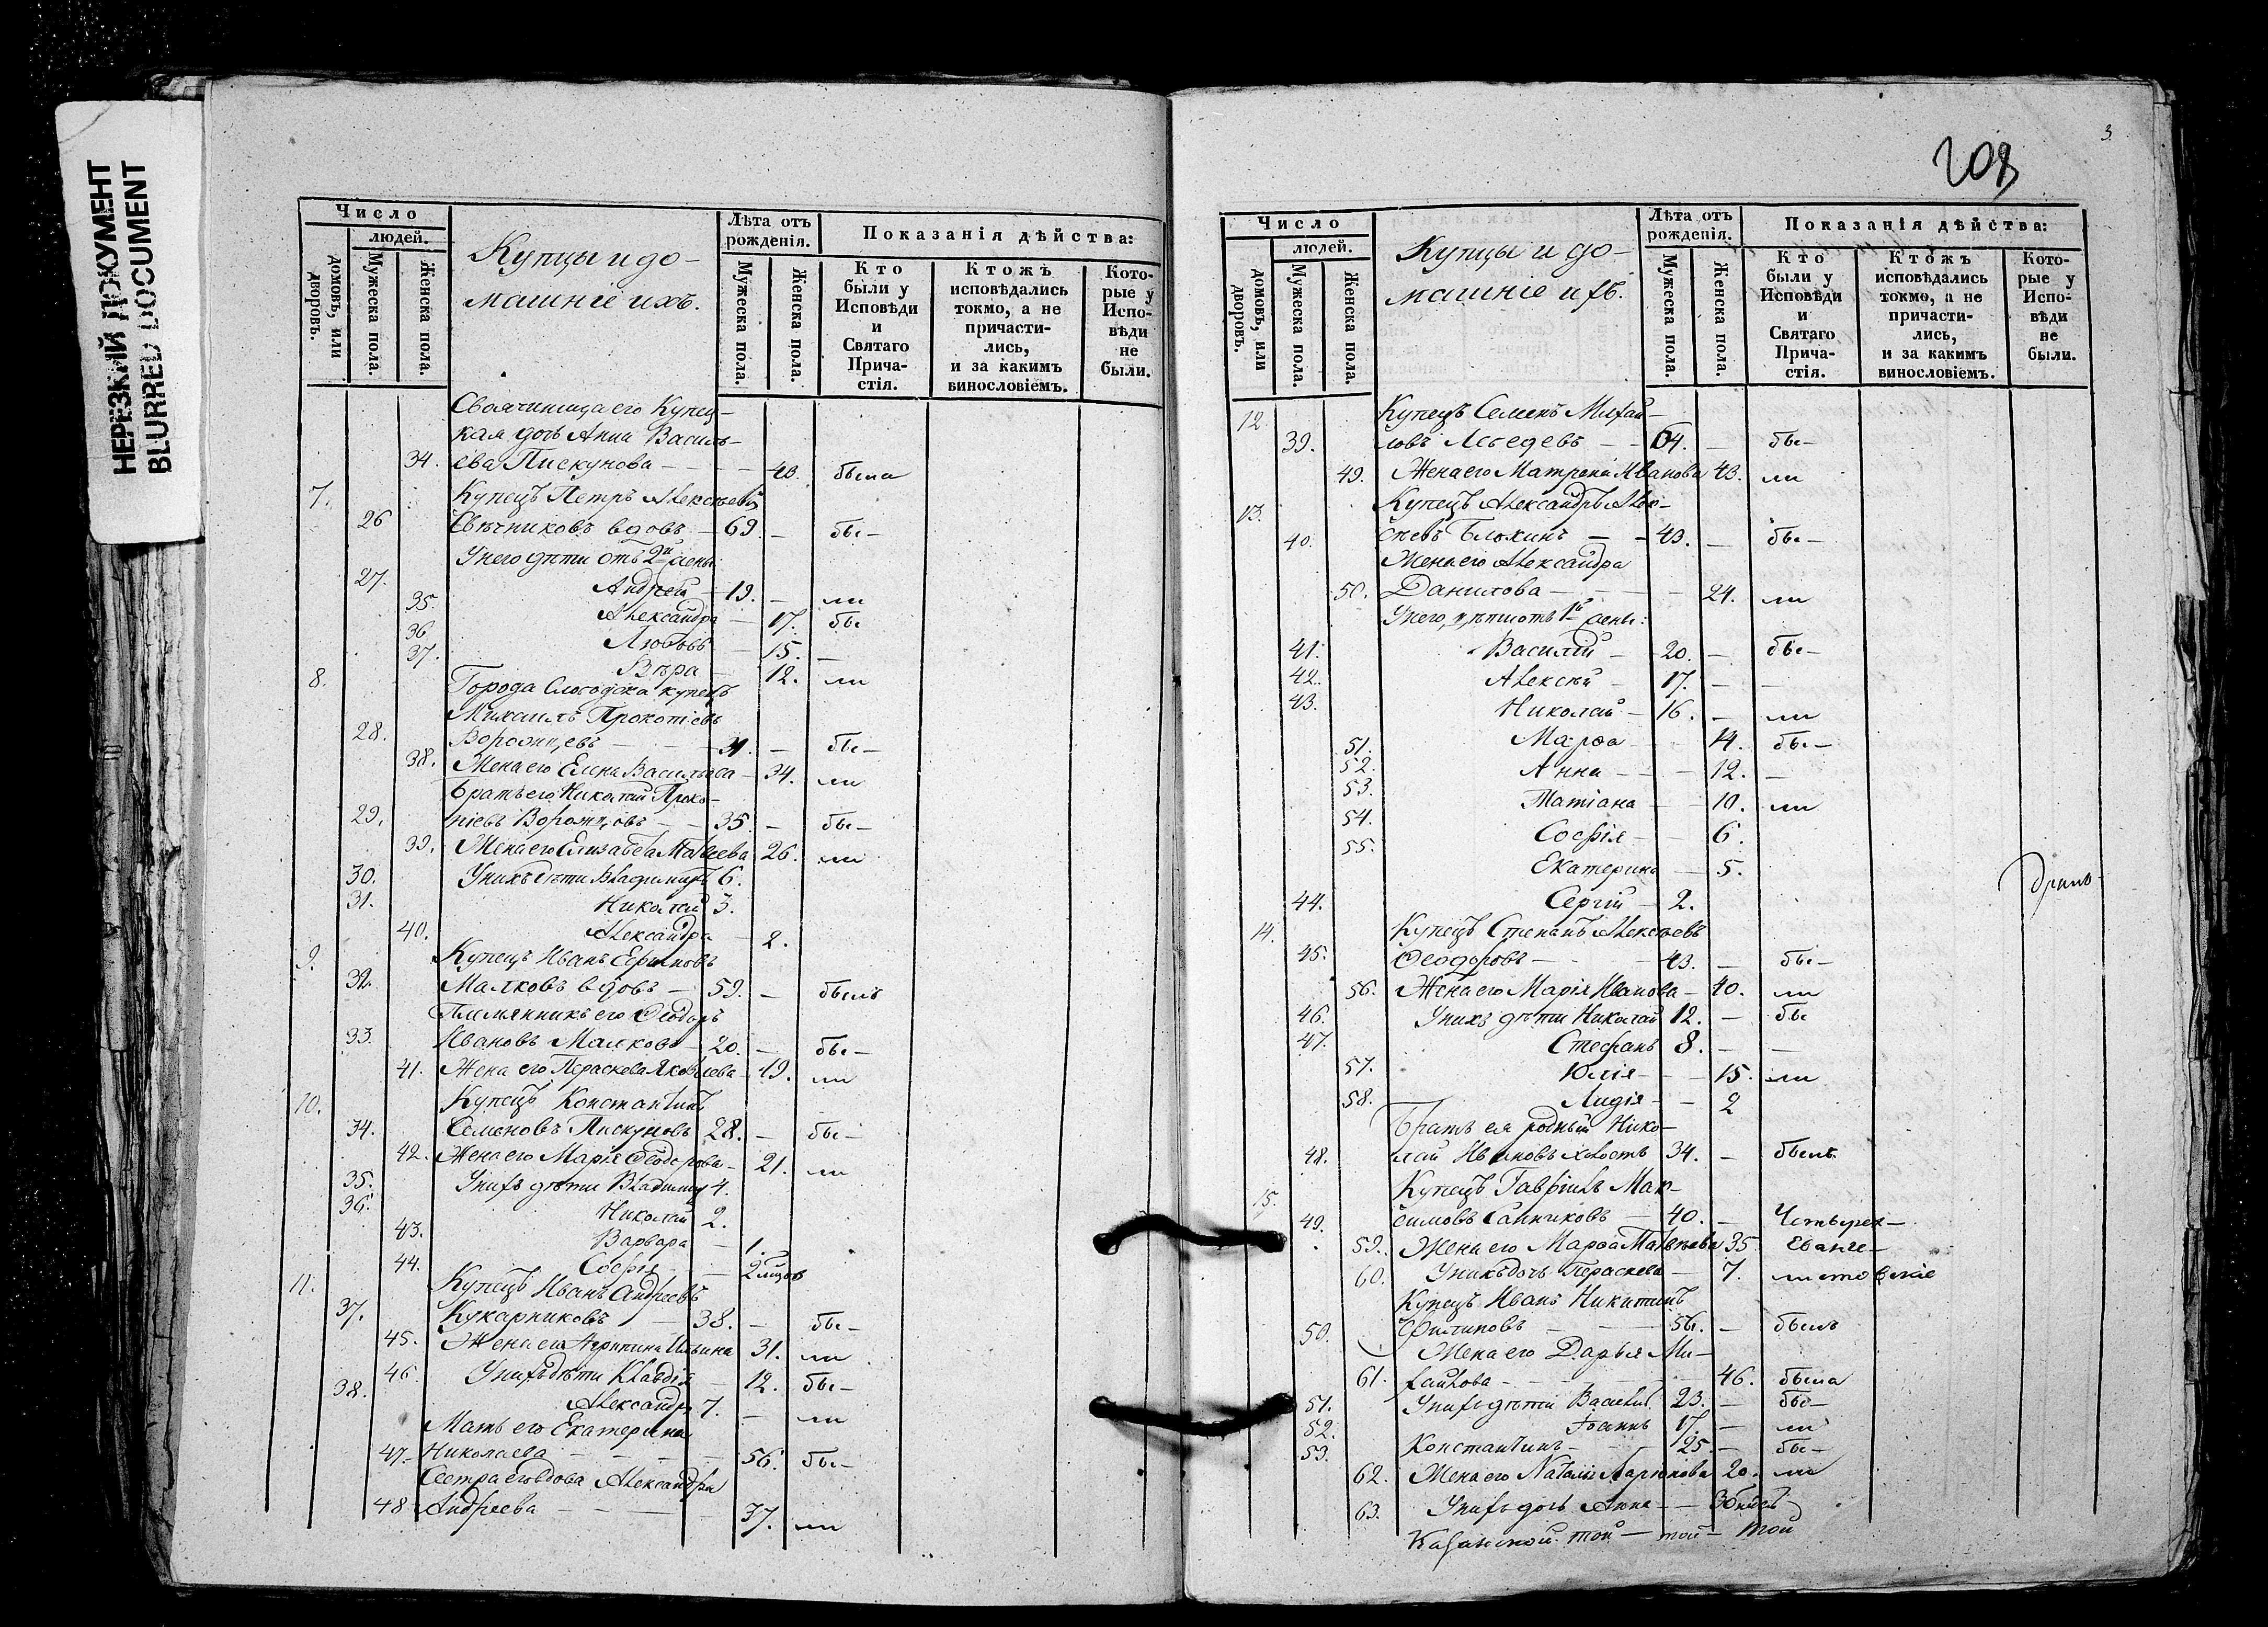 НЕРЕЗКИЙ ДОКУМЕНТ
BLURRED DOCUMENT
Число
людей.
домовъ, или дворовъ.
Мужеска пола.
Женска пола.
Купцы и до-
машніе ихъ.
Лѣта отъ рожденія.
Мужеска пола.
Женска пола.
Показанія дѣйства:
Кто были у Исповѣди и Святаго Причастія.
Ктожъ исповѣдались токмо, а не причасти-лись, и за какимъ винословіемъ.
Кото-рые у Испо-вѣди не были.
Свояченица его Купец-
кая дочь Анна Василь-
34. ева Пискунова - - - 43. была
7. Купецъ Петръ Алексѣевъ
26 Свѣчниковъ вдовъ - 69. - бы-
У него дѣти отъ 2й жены
27. Андрей - 19. - ли
35. Александра - 17. бы
36. Любовь - 15. -
37. Вѣра - 12. ли
8. Города Слободска купецъ
Михаилъ Прокопіевъ
28. Ворожцовъ - - 31. - бы-
38. Жена его Елена Васильева - 34. ли
Братъ его Николай Проко-
29. піевъ Ворожцовъ - 35 - бы-
39. Жена его Елизавета Матвѣева 26. ли
30. У нихъ дѣти Владимиръ 6.
31. Николай 3.
40. Александра - 2.
9. Купецъ Иванъ
32. Малковъ вдовъ - 59. - былъ
Племянникъ его Ѳеодоръ
33. Ивановъ Малковъ 20. - бы-
41. Жена его Параскева Яковлева - 19. ли
10. Купецъ Константинъ
34. Семеновъ Пискуновъ 28. - бы-
42. Жена его Марія Ѳеодорова - 21. ли
35. У нихъ дѣти Владимиръ 4.
36. Николай 2.
43. Варвара - 1.
44. Софія - 2
11. Купецъ Иванъ Андреевъ
37. Кукарниковъ - 38. - бы-
45. Жена его Агрипина Ильина 31. ли
46. У нихъ дѣти Клавдія - 12. бы-
38. Александръ 7. - ли
Мать его Екатерина
47. Николаева - - - 56. бы-
Сестра его вдова Александра
48 Андреева - - - 37. ли
208
3
Число
людей.
домовъ, или дворовъ.
Мужеска пола.
Женска пола.
Купцы и до-
машніе ихъ.
Лѣта отъ рожденія.
Мужеска пола.
Женска пола.
Показанія дѣйства:
Кто были у Исповѣди и Святаго Прича-стія.
Ктожъ исповѣдались токмо, а не причасти-лись, и за какимъ винословіемъ.
Кото-рые у Испо-вѣди не были.
12. Купецъ Семенъ Михай-
39. ловъ Лебедевъ - - 64. - бы-
49. Жена его Матрона Иванова 43. ли
13. Купецъ Александръ Алек-
40. сѣевъ Блохинъ - - 43. - бы-
Жена его Александра
50. Данилова - - 24. ли
У него дѣти отъ 1й жены:
41. Василій - 20. - бы-
42. Алексѣй - 17. - -
43. Николай - 16. - ли
51. Марѳа - 14. бы-
52. Анна - - 12. -
53. Татіана - 10. ли
54. Софія - 6.
55. Екатерина - 5.
44. Сергій - 2.
14. Купецъ Степанъ Алексѣевъ
45. Ѳеодоровъ - - 43. - бы-
56. Жена его Марія Иванова - 40. ли
46. У нихъ дѣти Николай 12. - бы
47. Стефанъ 8. - -
57. Юлія - 15. ли
58. Лидія - 2
Братъ ея родный Нико-
48. лай Ивановъ холостъ 34. - былъ
15. Купецъ Гавріилъ Мак-
49. симовъ Санниковъ - 40. - Четырех-
59. Жена его Марѳа Матвѣева 35 Еванге-
60. У нихъ дочь Параскева - 7. листовскіе
Купецъ Иванъ Никитинъ
50. Филиповъ - - 56. - былъ
Жена его Дарья Ми-
61. хайлова - - 46. была
51. У нихъ дѣти Василій 23. - бы-
52. Іоаннъ 17. - ли
53. Константинъ - 25. - бы-
62. Жена его Наталія 20. ли
63. У нихъ дочь Анна - -
Казанской той - той - той